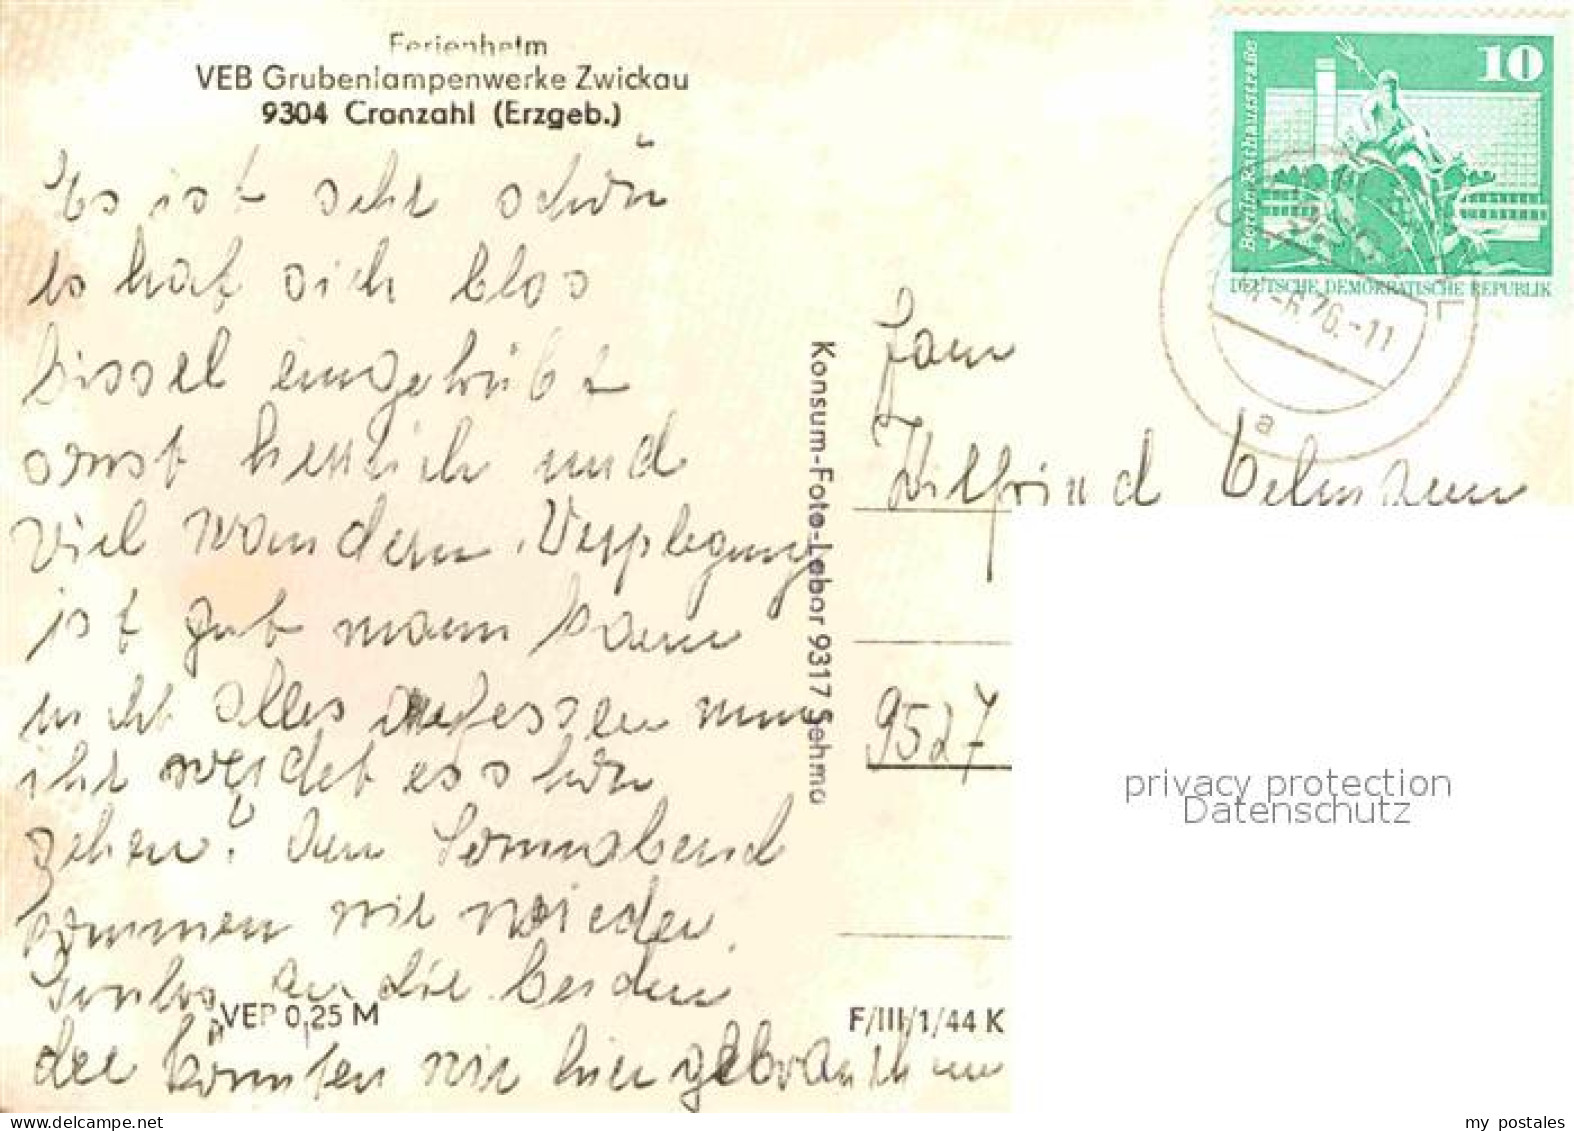 Ferienheim
VEB Grubenlampenwerke Zwickau
9304 Cranzahl (Erzgeb.)
Es ist sehr schön
es hat sich blos
bissel eingetrübt
sonst herrlich und
viel wandern. Verpflegung
ist gut mann kann
nicht alles aufessen nun
ihr werdet es schön
sehen? Am Sonnabend
kommen wir wieder.
an die beiden
die könnten wir hier gebrauchen
VEP 0,25 M
F/III/1/44 K
Konsum-Foto-Labor 9317 Sehma
10
Berlin, Rathausstraße
DEUTSCHE DEMOKRATISCHE REPUBLIK
-6.76.-11
a
Fam
Wilfried
9527
privacy protection
Datenschutz
www.delcampe.net
my_postales